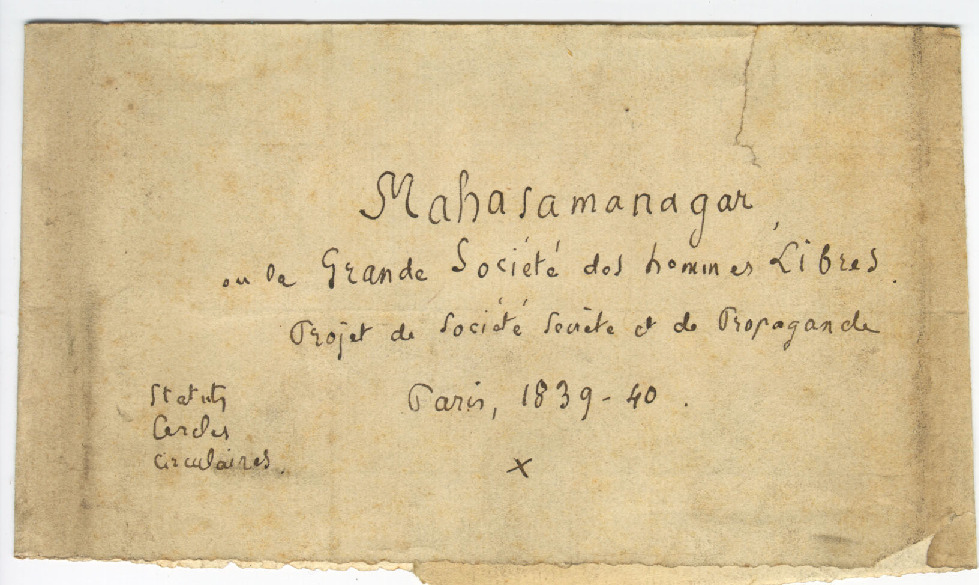 Mahasamanagar,
ou la Grande Société des hommes Libres.
Projet de Société Secrète et de Propagande
Paris, 1839-40.
Statuts
Cercles
Circulaires.
x